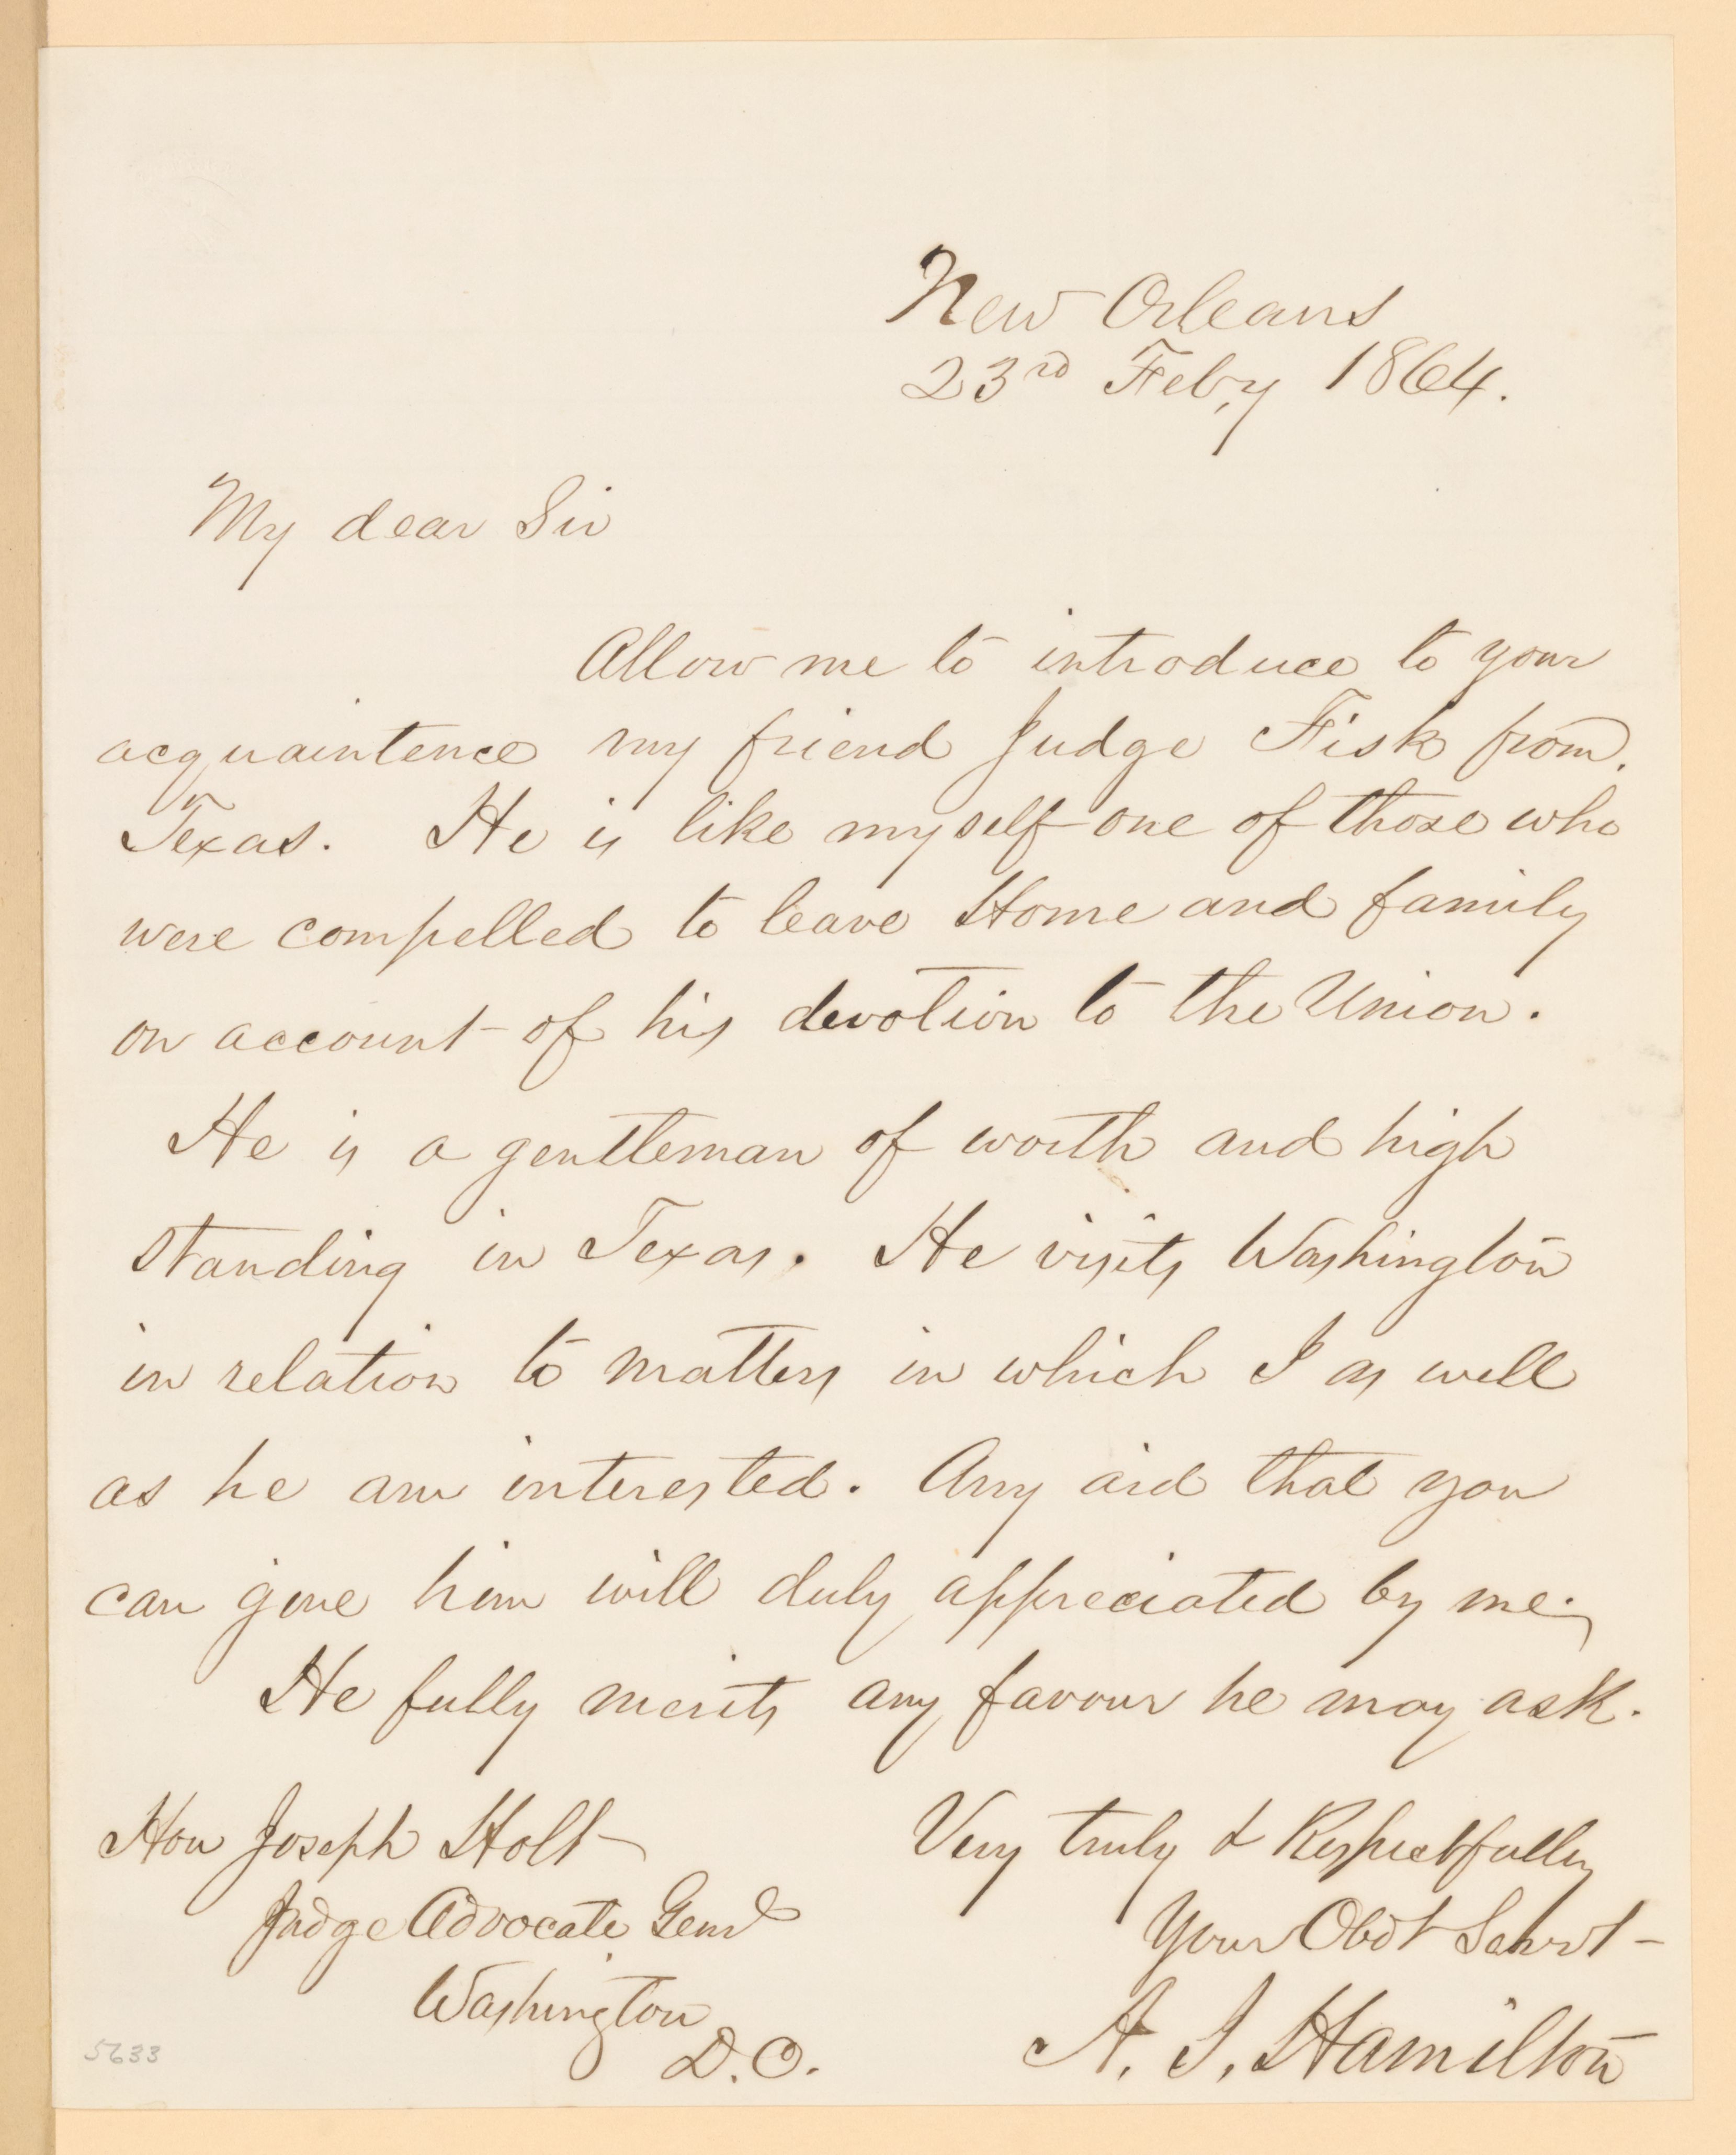 New Orleans
23rd Feb,y 1864.
My dear Sir
Allow me to introduce to your
acquaintence my friend Judge Fisk from
Texas. He is like myself one of those who
were compelled to leave Home and family
on account of his devotion to the Union.
He is a gentleman of worth and high
standing in Texas. He visits Washington
in relation to matters in which I as well
as he am interested. Any aid that you
can give him will duly appreciated by me.
He fully merits any favour he may ask.
Very truly & Respectfully
Your Obdt Servt
A. J. Hamilton
Hon Joseph Holt
Judge Advocate Genl
Washington
D.C.
5633